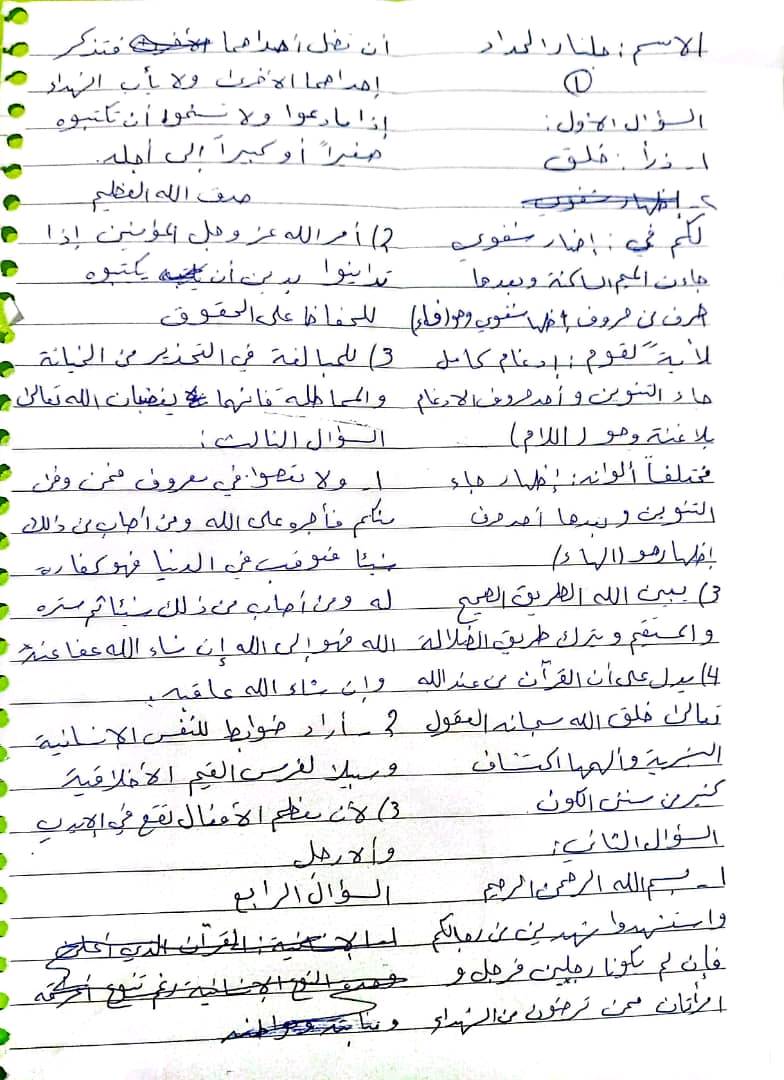 الاسم: جلنار الحداد
①
السؤال الأول:
١ـ ذرأ: خلق
٢ـ إظهار شفوي
لكم في: إظهار شفوي
جاءت الميم الساكنة وبعدها
حرف من حروف إظهار شفوي وهو (فاء)
لآية لقوم: إدغام كامل
جاء التنوين و أحد حروف الادغام
بلا غنة وهو (اللام)
مختلفاً ألوانه: إظهار جاء
التنوين و بعدها أحد حرف
إظهار هو (الهاء)
3) يبين الله الطريق الصحيح
والمستقيم و يترك طريق الضلالة
4) يدل على أن القرآن من عند الله
تعالى خلق الله سبحانه العقول
البشرية وألهمها اكتشاف
كثير من سنن الكون
السؤال الثاني:
١ـ بسم الله الرحمن الرحيم
واستشهدوا شهدين من رجالكم
فإن لم يكونا رجلين فرجل و
امرأتان ممن ترضون من الشهداء
أن تضل إحداهما فتذكر
إحداهما الأخرى ولا يأب الشهداء
إذا ما دعوا ولا تسئموا أن تكتبوه
صغيراً أو كبيراً إلى أجله.
صدق الله العظيم
2) أمر الله عز وجل المؤمنين إذا
تداينوا بدين أن يكتبوه
للحفاظ على الحقوق
3) للمبالغة في التحذير من الخيانة
والمماطلة فإنهما يغضبان الله تعالى
السؤال الثالث:
١ـ ولا تعصوا في معروف فمن وفى
منكم فأجره على الله ومن أصاب من ذلك
شيئا فعوقب في الدنيا فهو كفارة
له ومن أصاب من ذلك شيئا ثم ستره
الله فهو إلى الله إن شاء الله عفا عنه
وإن شاء الله عاقبه.
2ـ أراد ضوابط للنفس الانسانية
وسبيلا لغرس القيم الأخلاقية
3) لأن معظم الأفعال تقع في الايدي
والارجل
السؤال الرابع